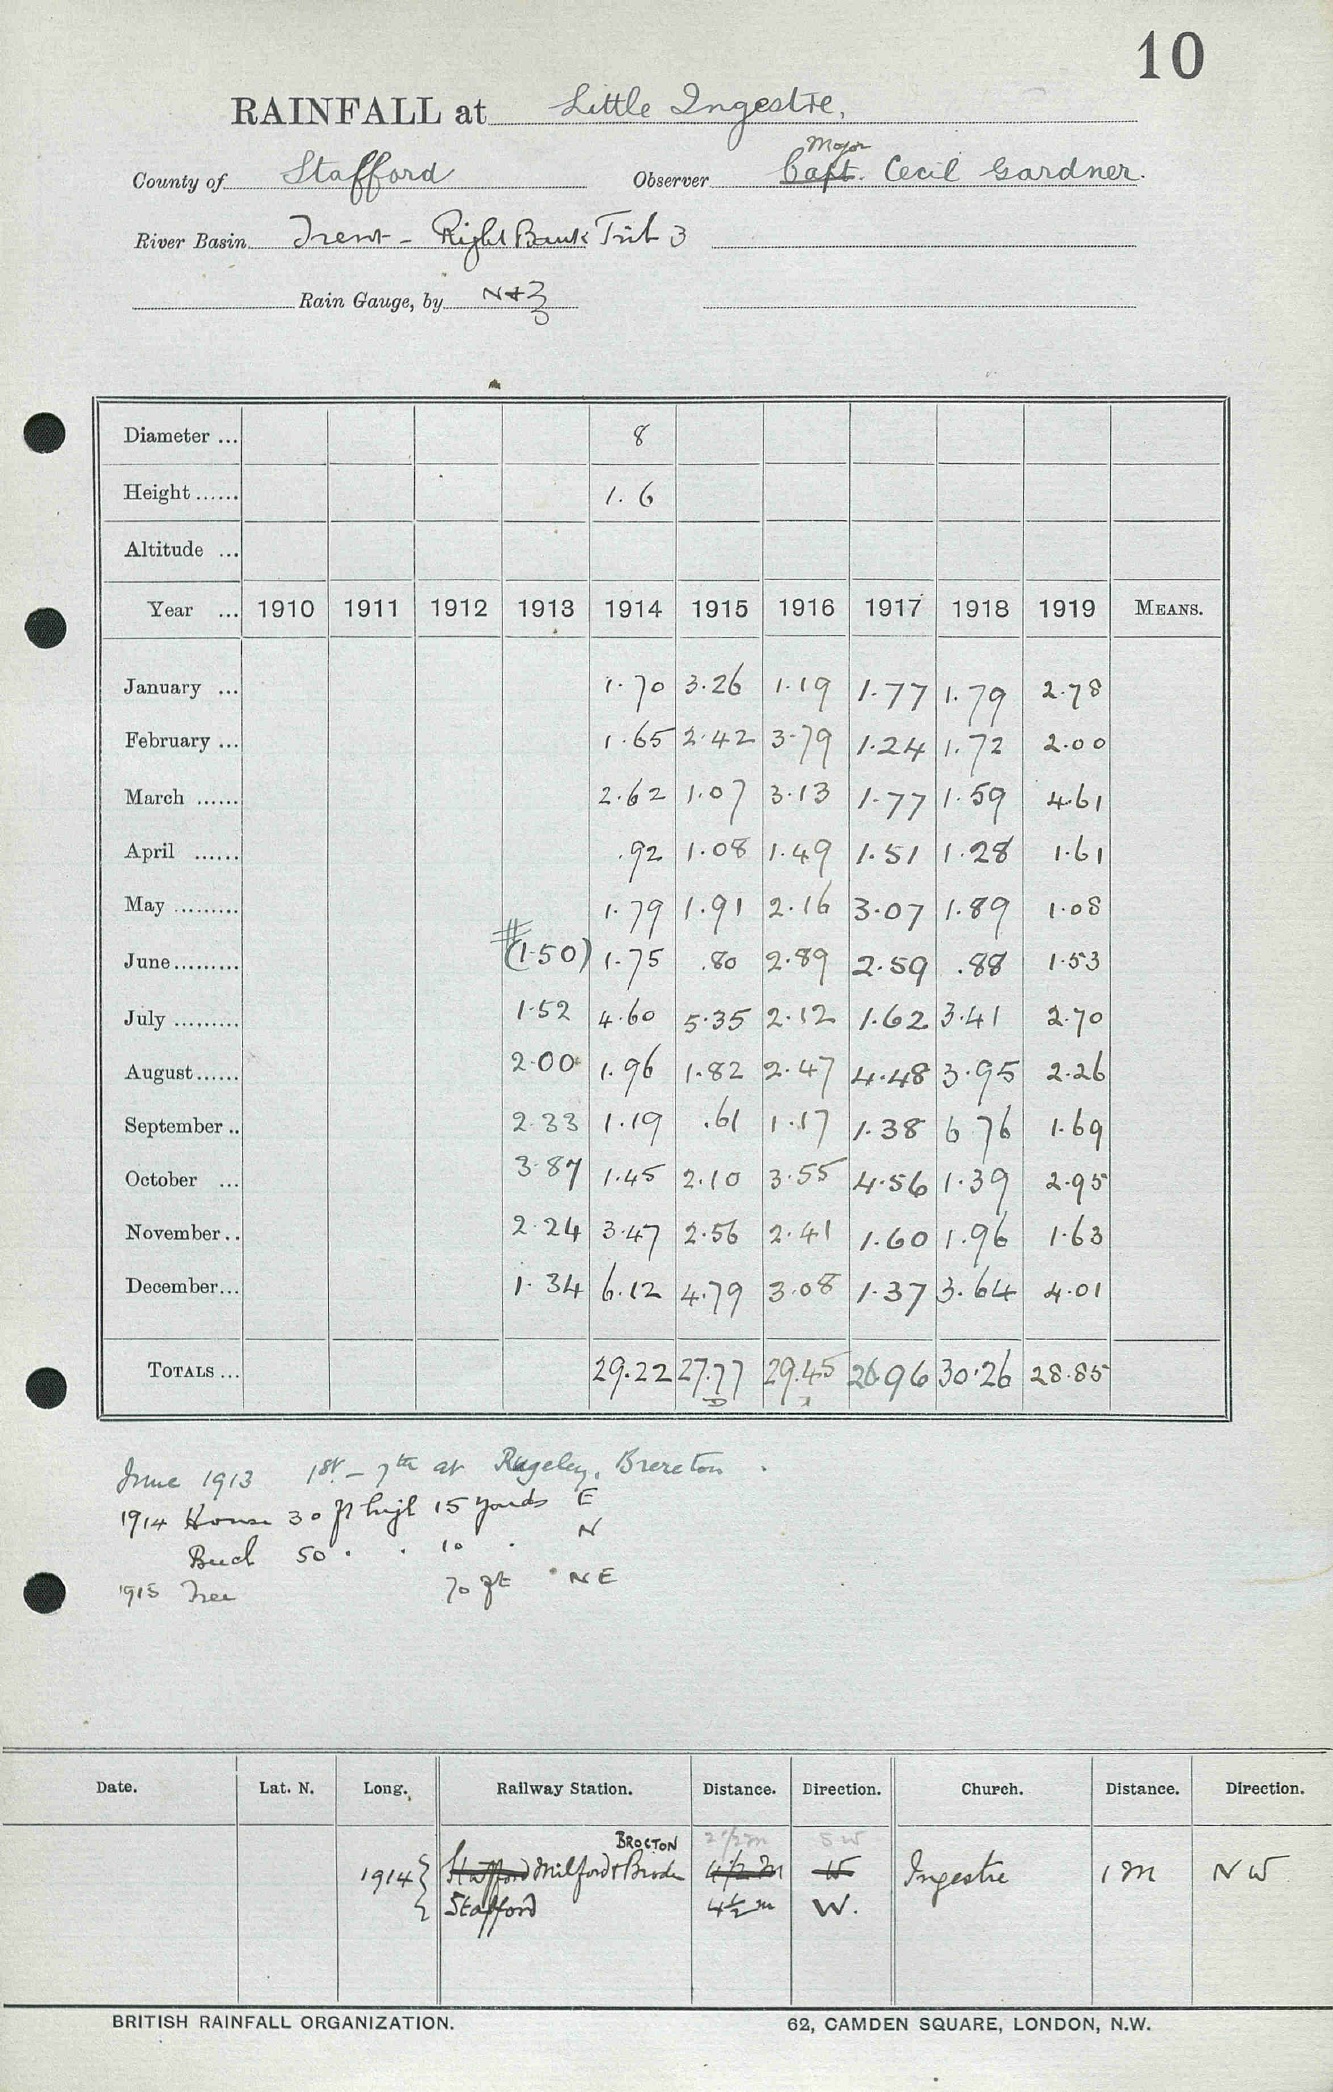 10
RAINFALL at Little Ingestre.
Major
County of Stafford Observer Capt. Cecil Gardner.
River Basin Trent - Right Bank Trib 3
Rain Gauge, by N+Z
Diameter ... 8
Height ...... 1.6
Altitude ...
Year ... 1910 1911 1912 1913 1914 1915 1916 1917 1918 1919 MEANS.
January ... 1.70 3.26 1.19 1.77 1.79 2.78
February ... 1.65 2.42 3.79 1.24 1.72 2.00
March ...... 2.62 1.07 3.13 1.77 1.59 4.61
April ...... .92 1.08 1.49 1.51 1.28 1.61
May ......... 1.79 1.91 2.16 3.07 1.89 1.08
June......... #(1.50) 1.75 .80 2.89 2.59 .88 1.53
July ......... 1.52 4.60 5.35 2.12 1.62 3.41 2.70
August...... 2.00 1.96 1.82 2.47 4.48 3.95 2.26
September .. 2.33 1.19 .61 1.17 1.38 6.76 1.69
October ... 3.87 1.45 2.10 3.55 4.56 1.39 2.95
November.. 2.24 3.47 2.56 2.41 1.60 1.96 1.63
December... 1.34 6.12 4.79 3.08 1.37 3.64 4.01
TOTALS ... 29.22 27.77 29.45 26.96 30.26 28.85
June 1913 1st - 7th at Rugeley, Brereton.
1914 House 30 ft high 15 yards E
50 " " 10 " N
1915 Tree 70 ft " NE
Date. Lat. N. Long. Railway Station. Distance. Direction. Church. Distance. Direction.
BROCTON 2 1/2 m SW
1914 { Stafford Milford + 4 1/2 m W Ingestre 1 m NW
{ Stafford 4 1/2 m W.
BRITISH RAINFALL ORGANIZATION. 62, CAMDEN SQUARE, LONDON, N.W.